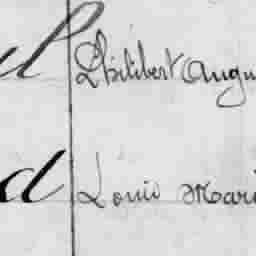 l Philibert Augu
d Louis Mari